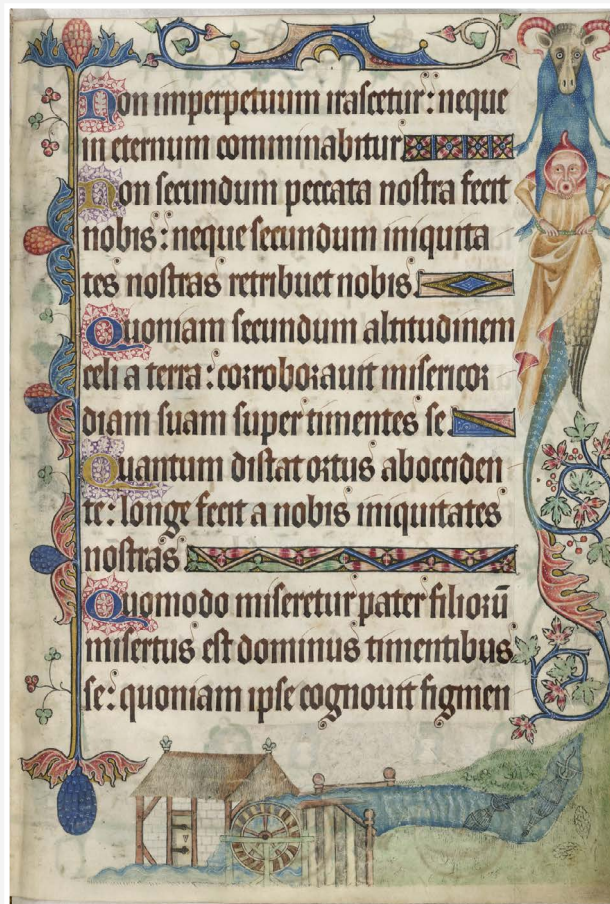 Non imperpetuum irascetur: neque
in eternum comminabitur
Non secundum peccata nostra fecit
nobis: neque secundum iniquita
tes nostras retribuet nobis.
Quoniam secundum altitudinem
celi a terra: corroborauit misericor
diam suam super timentes se
Quantum distat ortus abocciden
te: longe fecit a nobis iniquitates
nostras
Quomodo miseretur pater filiorū
misertus est dominus timentibus
se: quoniam ipse cognouit figmen